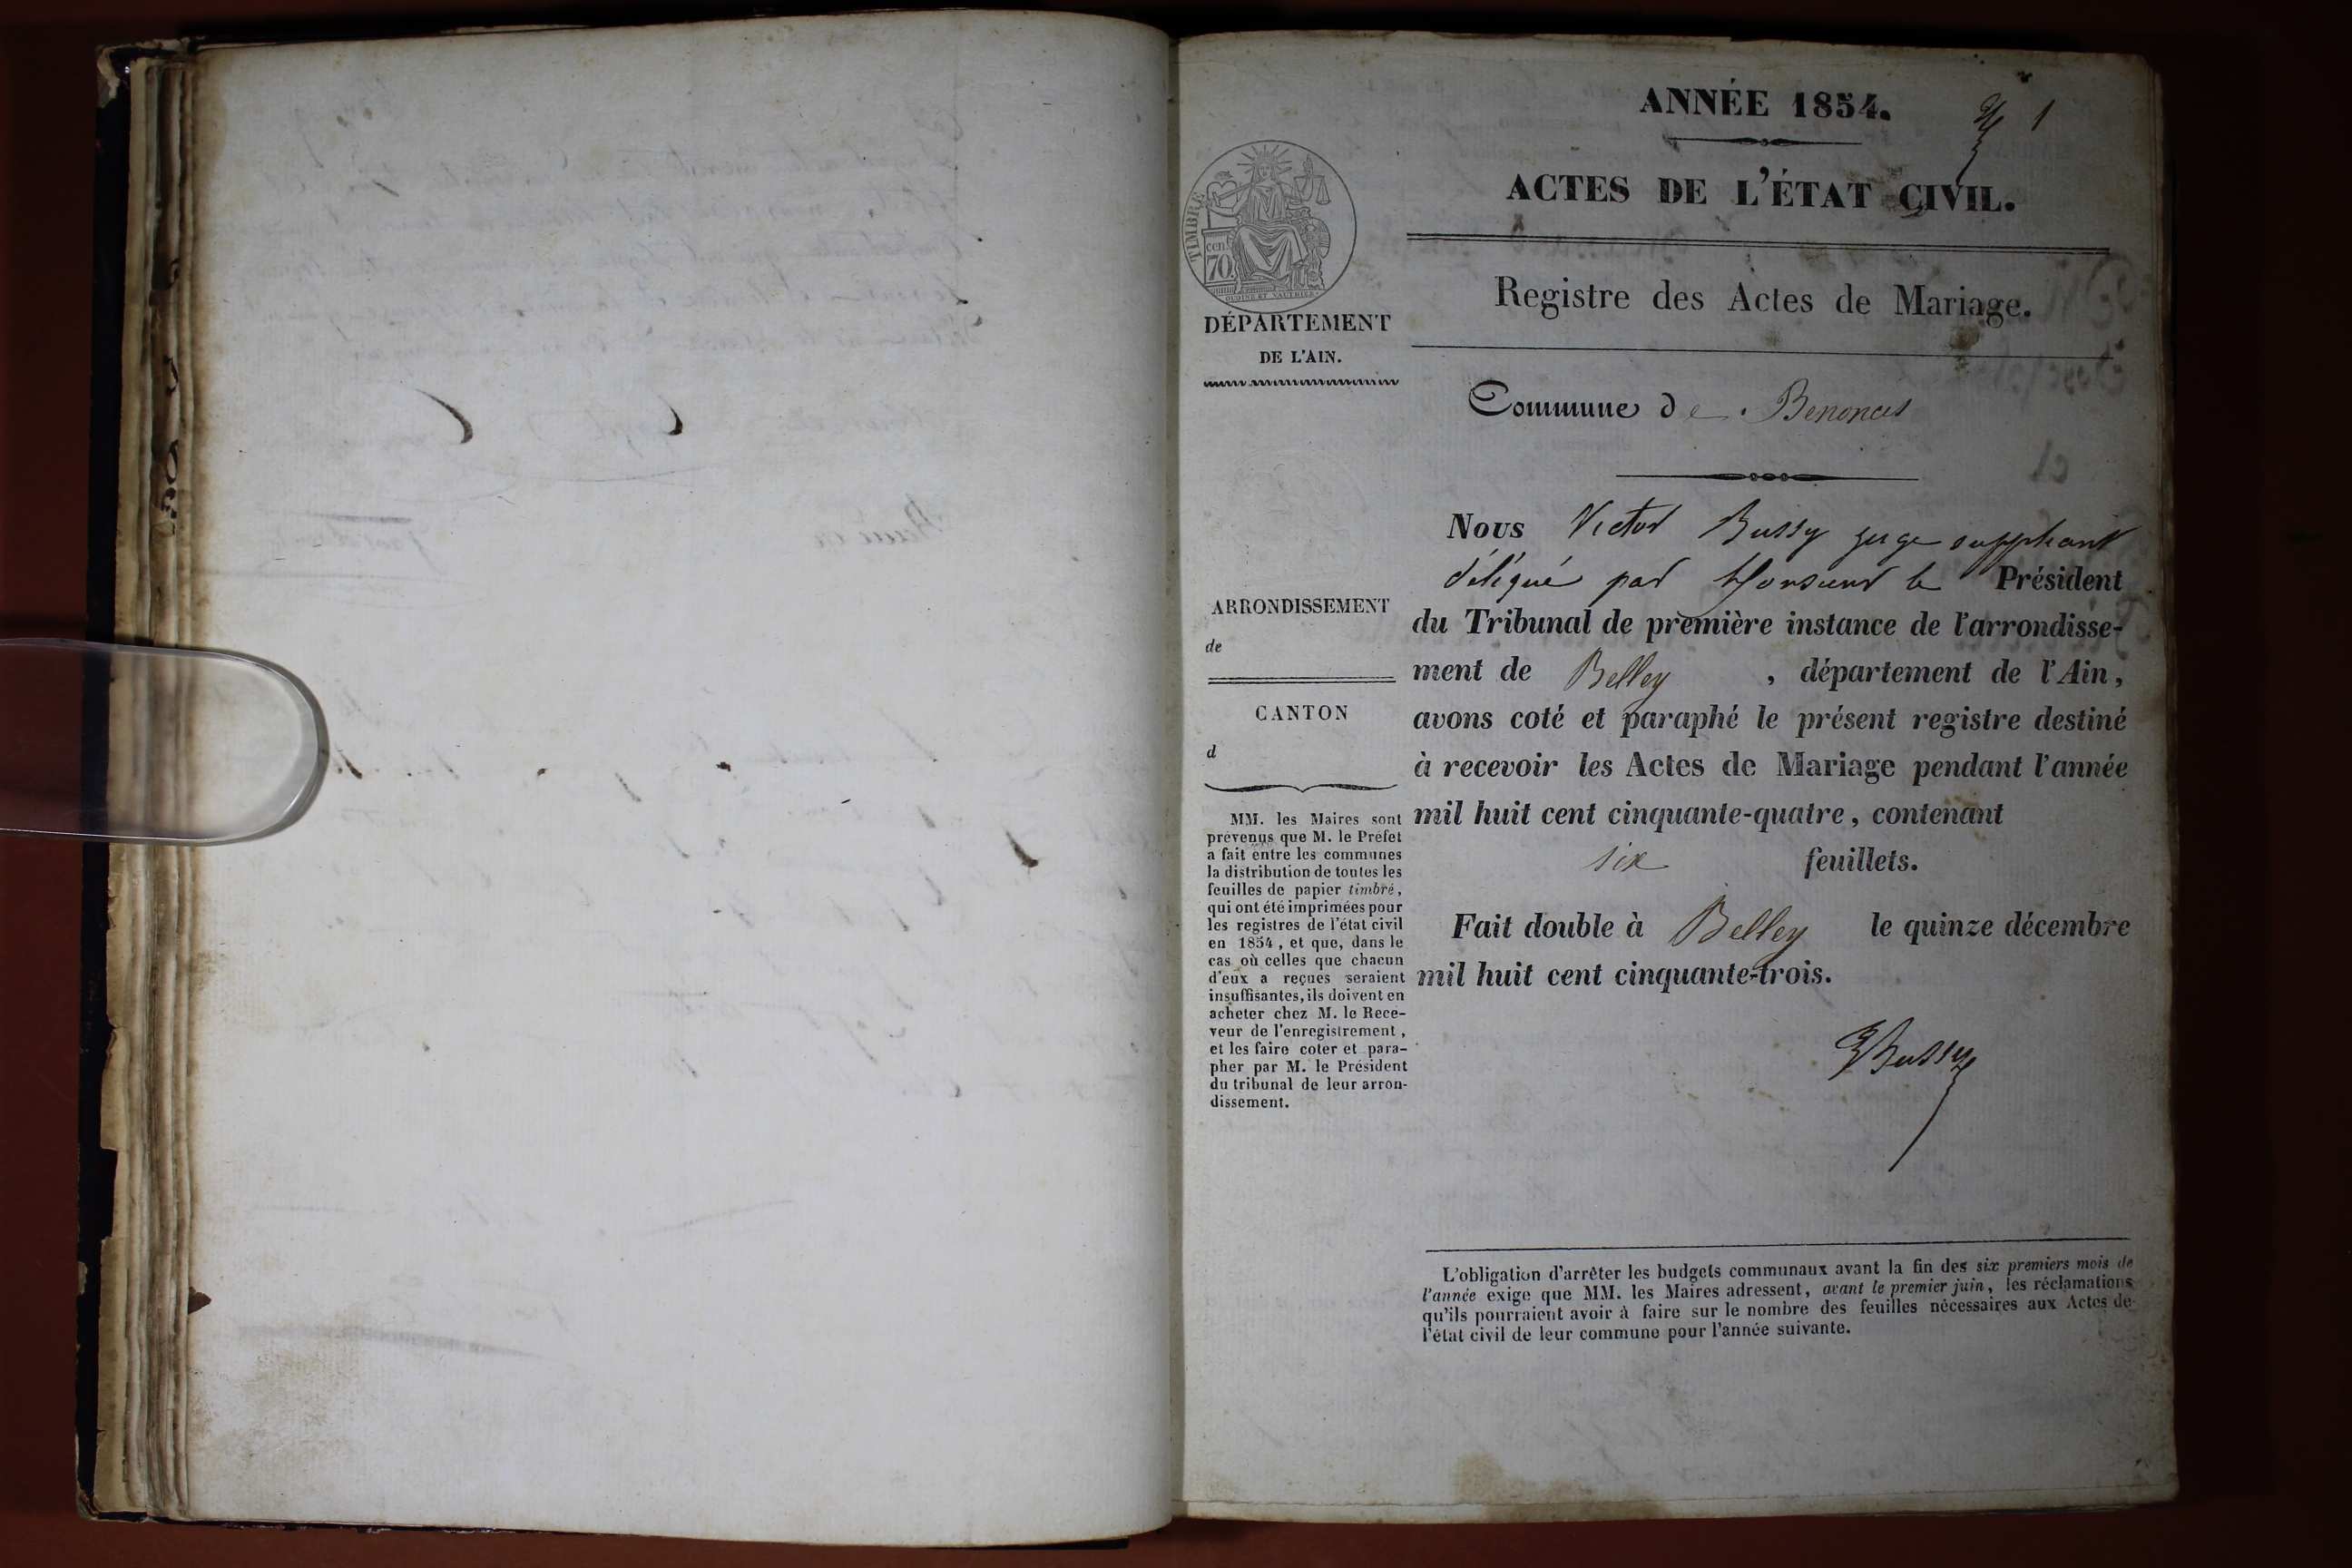 ANNÉE 1854.
1
ACTES DE L'ÉTAT CIVIL.
Registre des Actes de Mariage.
TIMBRE
cent.
70
OUDINÉ ET VAUTHIER
DÉPARTEMENT
DE L'AIN.
Commune de Benonces
Nous Victor Bussy juge suppléant
délégué par Monsieur le Président
du Tribunal de première instance de l'arrondisse-
ment de Belley , département de l'Ain,
avons coté et paraphé le présent registre destiné
à recevoir les Actes de Mariage pendant l'année
mil huit cent cinquante-quatre, contenant
six feuillets.
Fait double à Belley le quinze décembre
mil huit cent cinquante-trois.
VBussy
ARRONDISSEMENT
de
CANTON
d
MM. les Maires sont
prévenus que M. le Préfet
a fait entre les communes
la distribution de toutes les
feuilles de papier timbré,
qui ont été imprimées pour
les registres de l'état civil
en 1854, et que, dans le
cas où celles que chacun
d'eux a reçues seraient
insuffisantes, ils doivent en
acheter chez M. le Rece-
veur de l'enregistrement,
et les faire coter et para-
pher par M. le Président
du tribunal de leur arron-
dissement.
L'obligation d'arrêter les budgets communaux avant la fin des six premiers mois de
l'année exige que MM. les Maires adressent, avant le premier juin, les réclamations
qu'ils pourraient avoir à faire sur le nombre des feuilles nécessaires aux Actes de
l'état civil de leur commune pour l'année suivante.